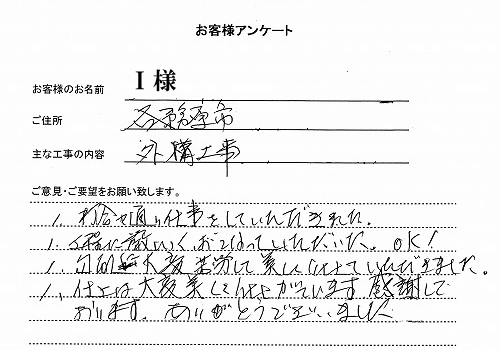 お客様アンケート
お客様のお名前 I 様
ご住所 各務原市
主な工事の内容 外構工事
ご意見・ご要望をお願い致します。
1、打合せ通り仕事をしていただきました。
1、工程に おこなっていただいた。OK！
1、 大変苦労して美しく仕上ていただきました。
1、仕上は大変美しく仕上がっています 感謝して
おります。ありがとうございました